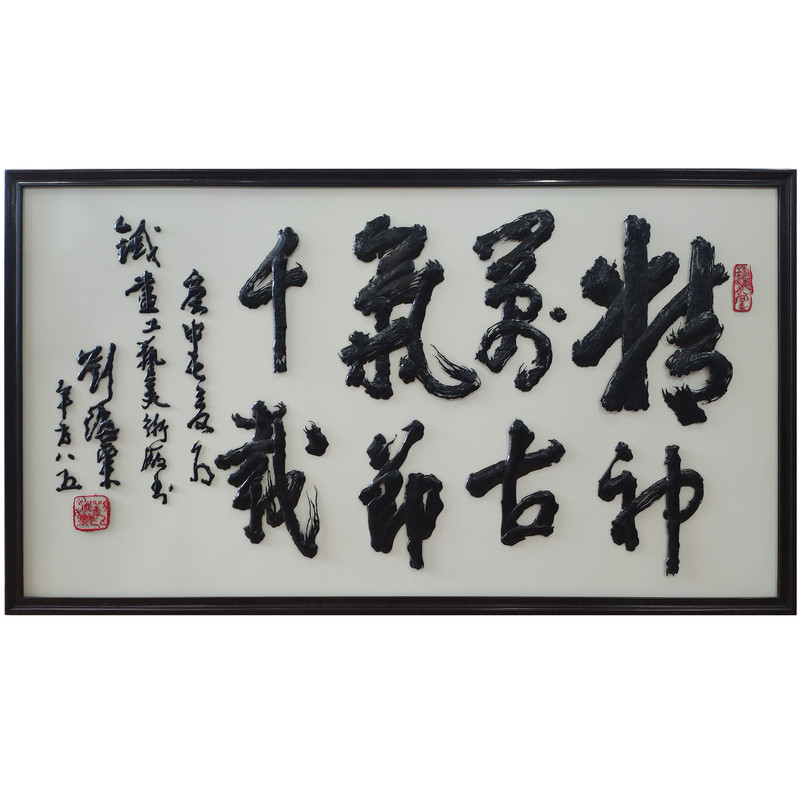 精神
萬古
氣節
千載
庚申
鐵畫工藝美術廠書
劉海粟
年方八五